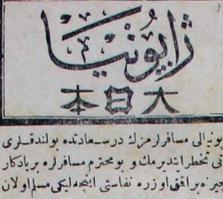 ژاپونیا
本日大
ﮊاپونیالی مسافرلرمزك درسعادتده بولندقلری
تخطر ایتدیرمك و بو محترم مسافرلره بر یادكار
براقمق اوزره نفاستی اینجه‌لیكی مسلم اولان